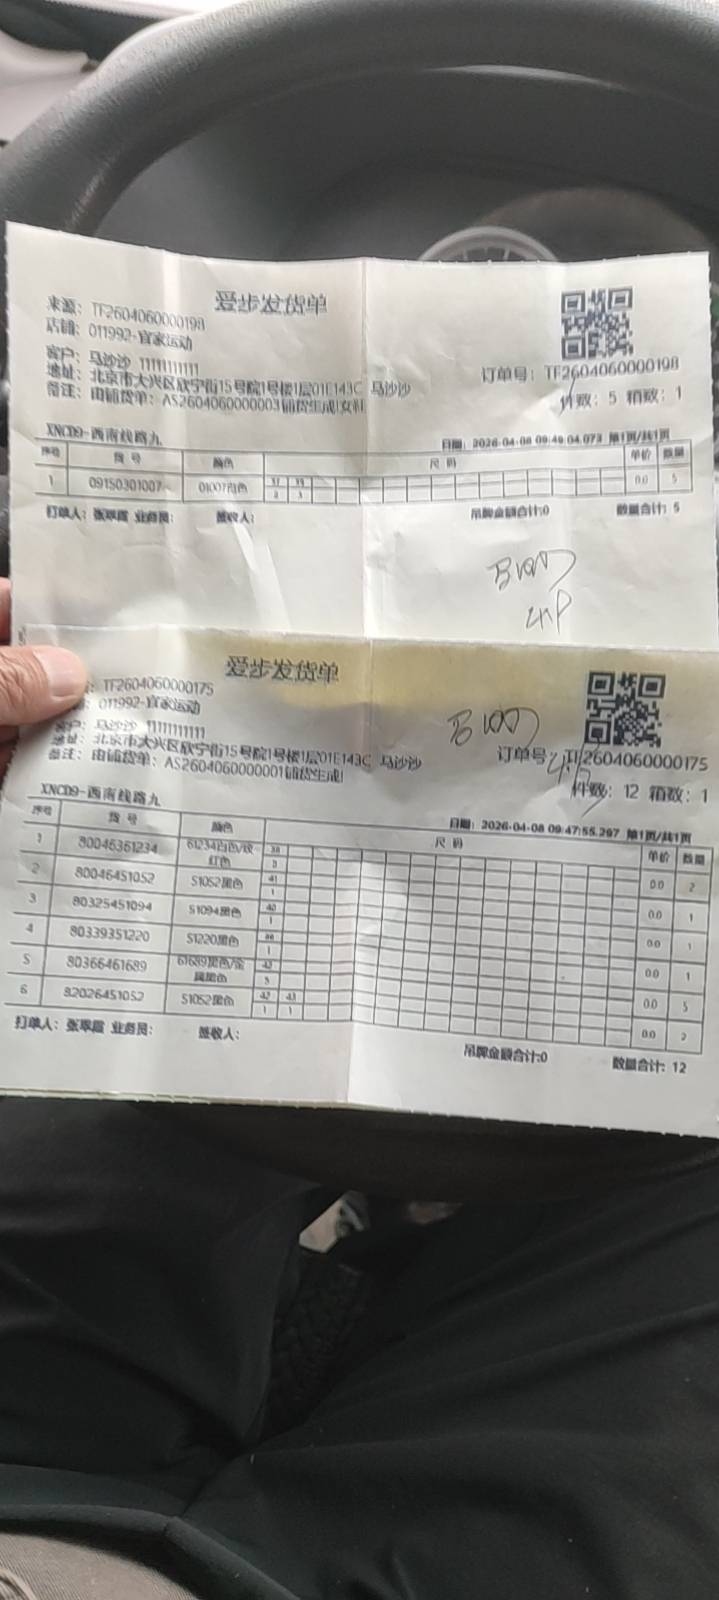 爱步发货单
来源: TF2604060000198
店铺: 011992-宜家运动
客户: 马沙沙 11111111111
地址: 北京市大兴区欣宁街15号院1号楼1层01E143C 马沙沙
备注: 由铺货单: AS2604060000003铺货生成!女鞋
订单号: TF2604060000198
件数: 5 箱数: 1
XNCD9-西南线路九
日期: 2026-04-08 09:49:04.073 第1页/共1页
序号 货 号 颜色 尺 码 单价 数量
37 39
1 09150301007 01007白色 2 3 0.0 5
打单人: 张翠霞 业务员: 签收人: 吊牌金额合计:0 数量合计: 5
爱步发货单
TF2604060000175
011992-宜家运动
客户: 马沙沙 11111111111
地址: 北京市大兴区欣宁街15号院1号楼1层01E143C 马沙沙
备注: 由铺货单: AS2604060000001铺货生成!
订单号: TF2604060000175
件数: 12 箱数: 1
XNCD9-西南线路九
日期: 2026-04-08 09:47:55.297 第1页/共1页
序号 货 号 颜色 尺 码 单价 数量
1 80046361234 61234白色/玫红色 38 0.0 2
2 80046451052 51052黑色 41 1 0.0 1
3 80325451094 51094黑色 40 1 0.0 1
4 80339351220 51220黑色 1 0.0 1
5 80366461689 61689黑色/金属黑色 42 5 0.0 5
6 82026451052 51052黑色 42 43 1 1 0.0 2
打单人: 张翠霞 业务员: 签收人: 吊牌金额合计:0 数量合计: 12